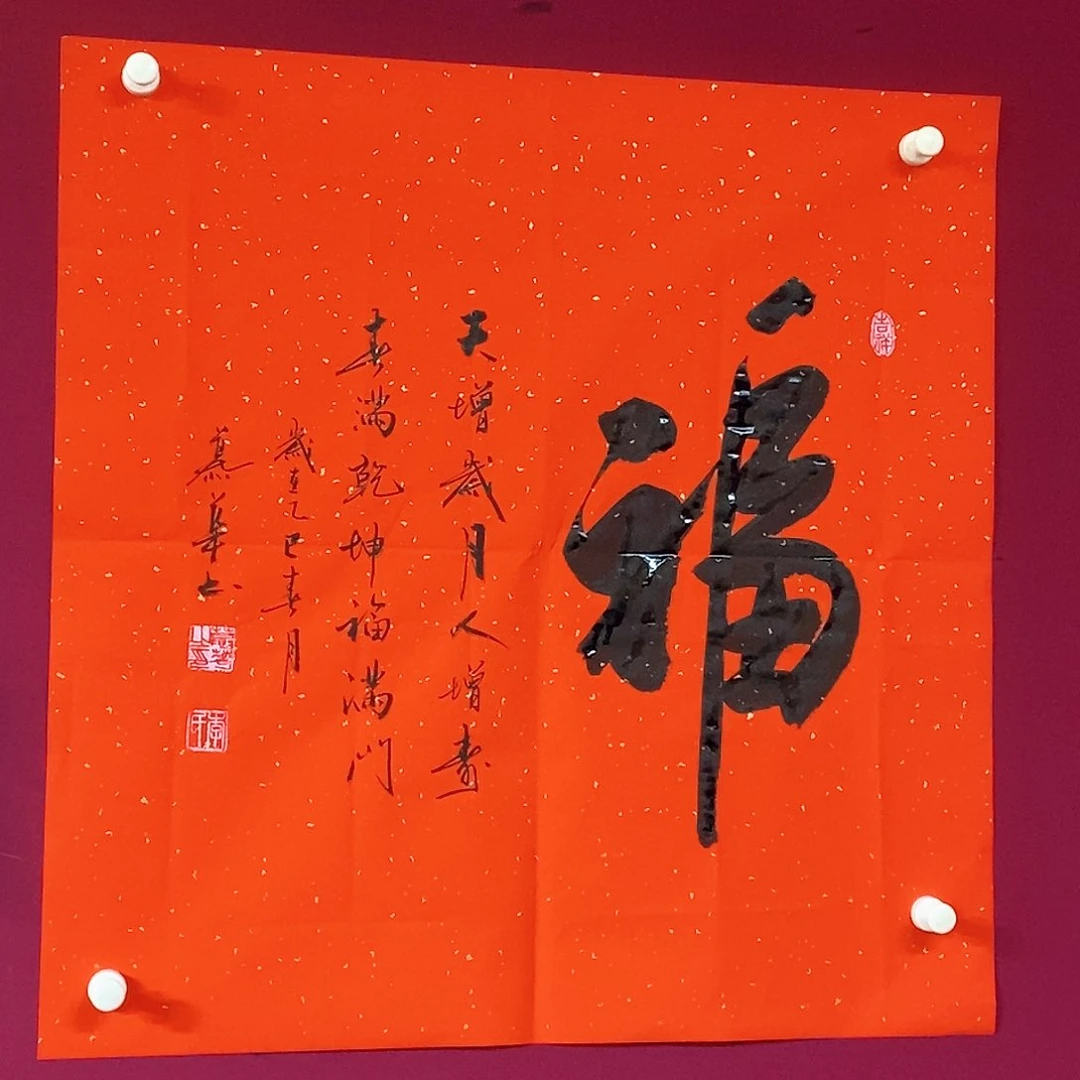 吉祥
福
天增歲月人增壽
春滿乾坤福滿門
歲在乙巳春月
華书